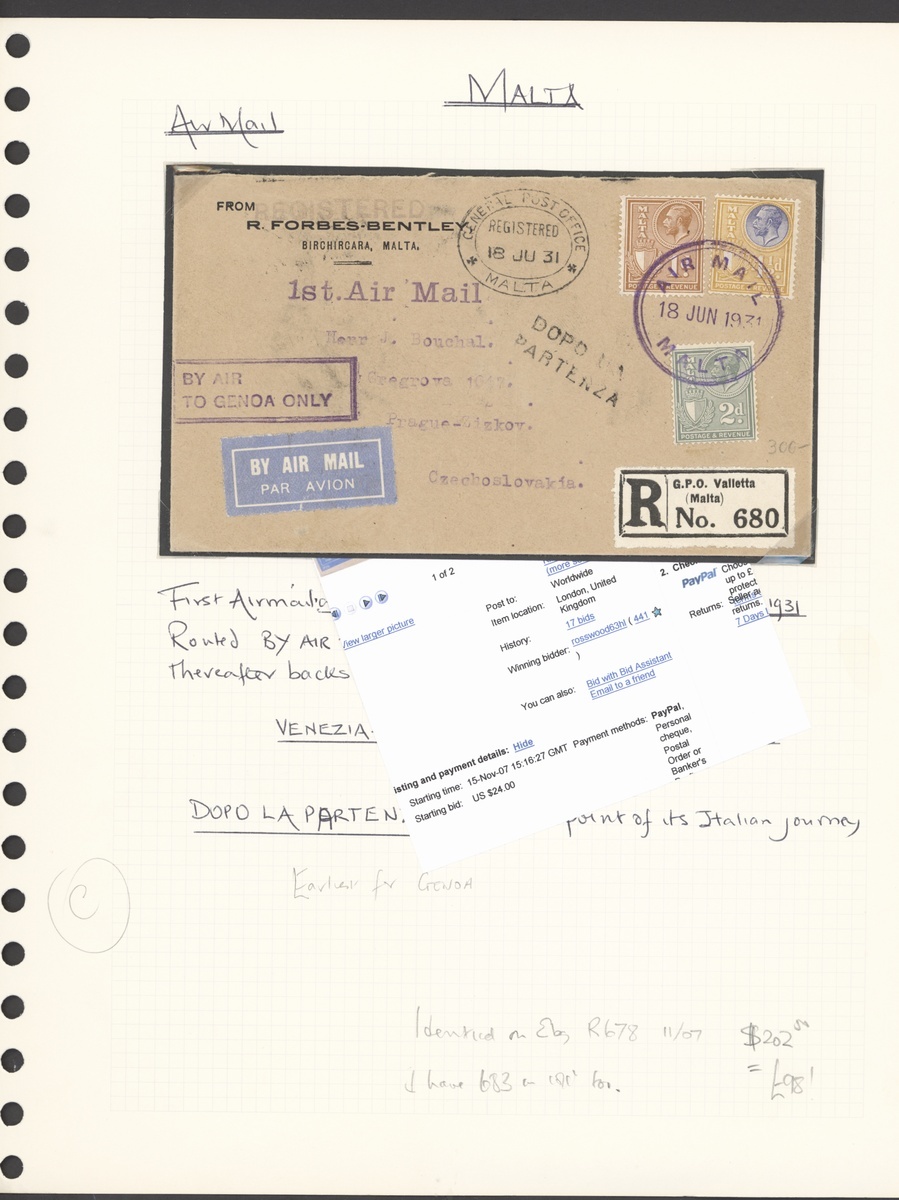 MALTA
Air Mail
FROM
REGISTERED
R. FORBES-BENTLEY
BIRCHIRCARA, MALTA.
GENERAL POST OFFICE
REGISTERED
18 JU 31
MALTA
MALTA
POSTAGE & REVENUE
MALTA
POSTAGE & REVENUE
AIR MAIL
18 JUN 1931
MALTA
1st.Air Mail
Herr J. Bouchal.
Gregrova
Prague-Zizkov.
Czechoslovakia.
DOPO LA
PARTENZA
BY AIR
TO GENOA ONLY
BY AIR MAIL
PAR AVION
2d
POSTAGE & REVENUE
306-
R
G.P.O. Valletta
(Malta)
No. 680
First Airmail
1931
Routed BY AIR
thereafter backs
VENEZIA.
DOPO LA PARTEN.
point of its Italian journey
1 of 2
View larger picture
Post to:
Worldwide
Item location:
London, United
Kingdom
History:
17 bids
Winning bidder:
rosswood63hl ( 441
)
You can also:
Bid with Bid Assistant
Email to a friend
2. Chec
PayPal
Choos
up to £
protect
Returns:
Seller a
returns.
7 Days
isting and payment details: Hide
Starting time: 15-Nov-07 15:16:27 GMT
Starting bid: US $24.00
Payment methods: PayPal,
Personal
cheque,
Postal
Order or
Banker's
Earliest for GENOA
C
Identical on Ebay R678 11/07 $202.50
= £98!
I have 683 too.